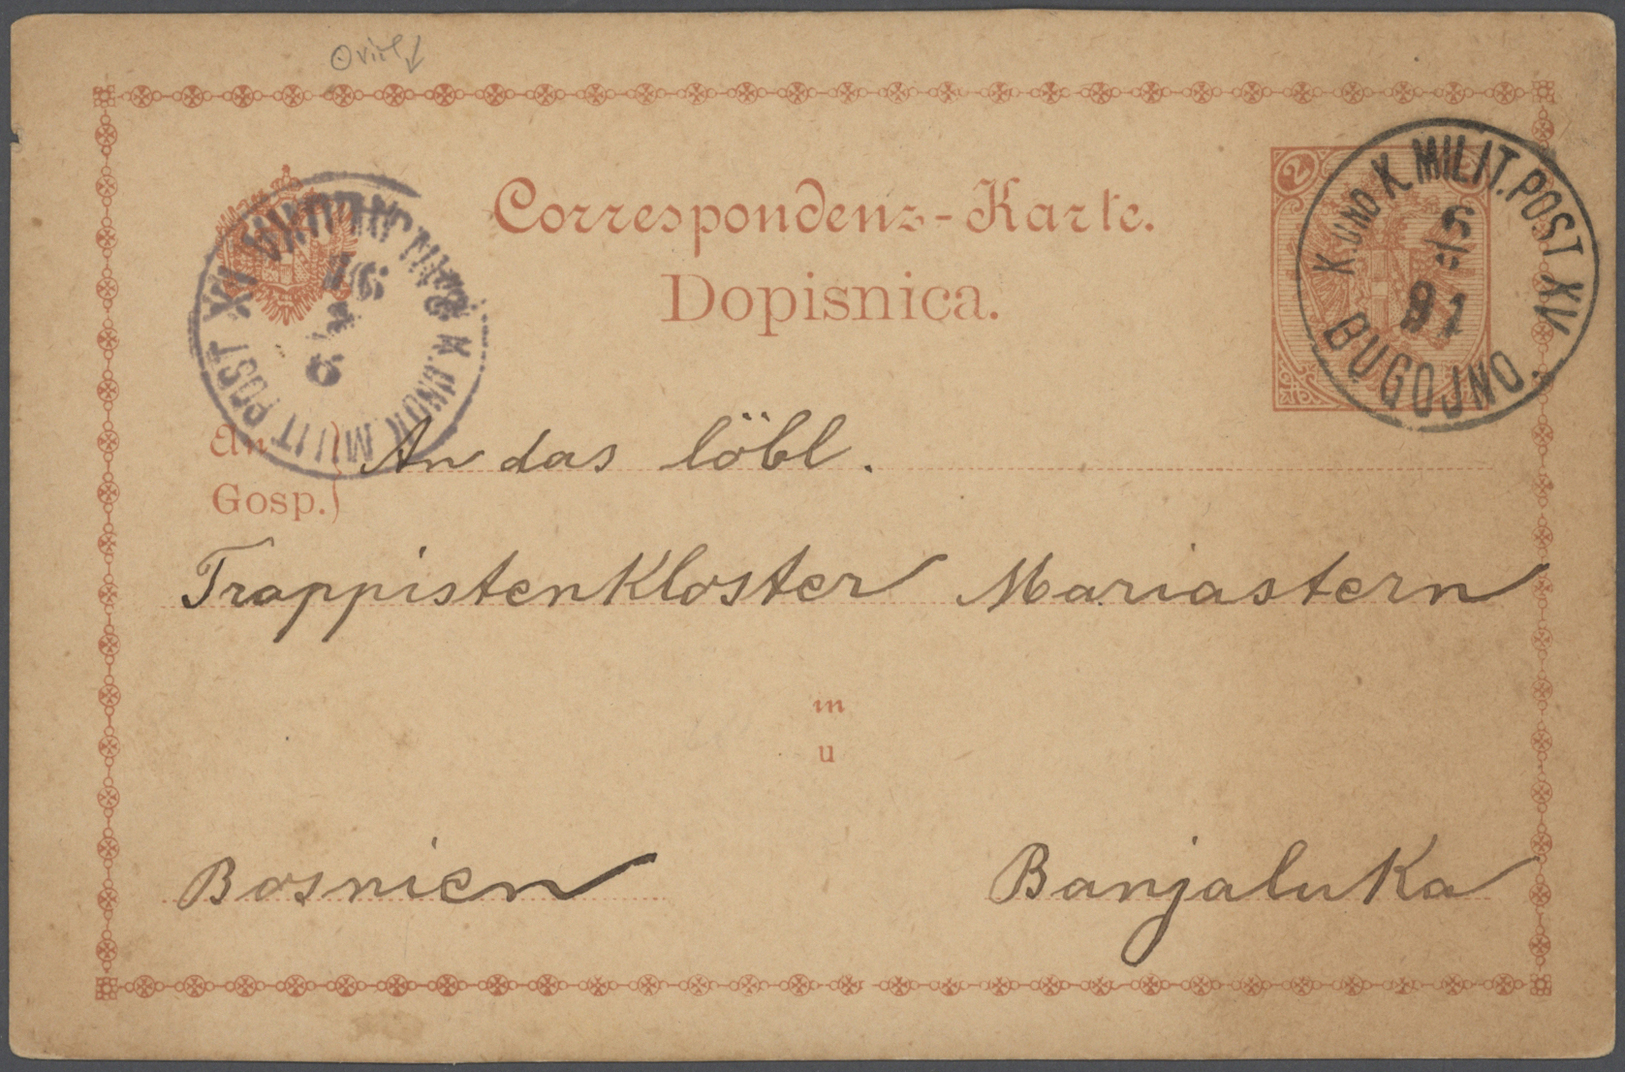 Correspondenz-Karte.
Dopisnica.
2
K. UND K. MILIT. POST XV.
6
91
BUGOJNO.
K. UND K. MILIT POST XV
BANJALUKA
9
91
An
Gosp.
An das löbl.
Trappistenkloster Mariastern
in
u
Bosnien Banjaluka